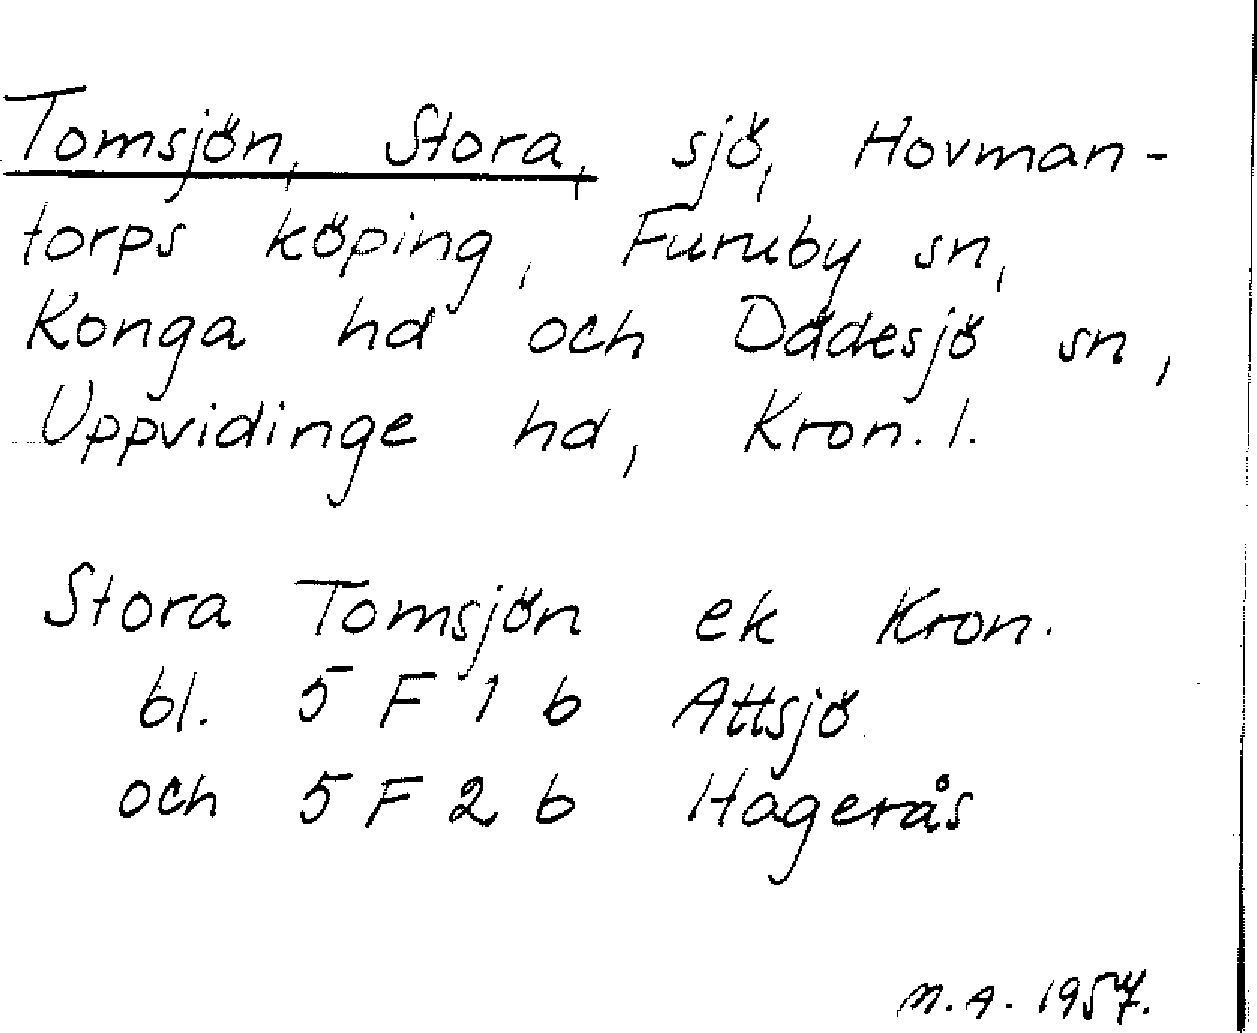 Tomsjön, Stora, sjö, Hovman-
torps köping, Furuby sn,
Konga hd och Dädesjö sn,
Uppvidinge hd, Kron. l.
Stora Tomsjön ek Kron.
bl. 5 F 1 b Attsjö
och 5 F 2 b Hagerås
M.A. 1957.